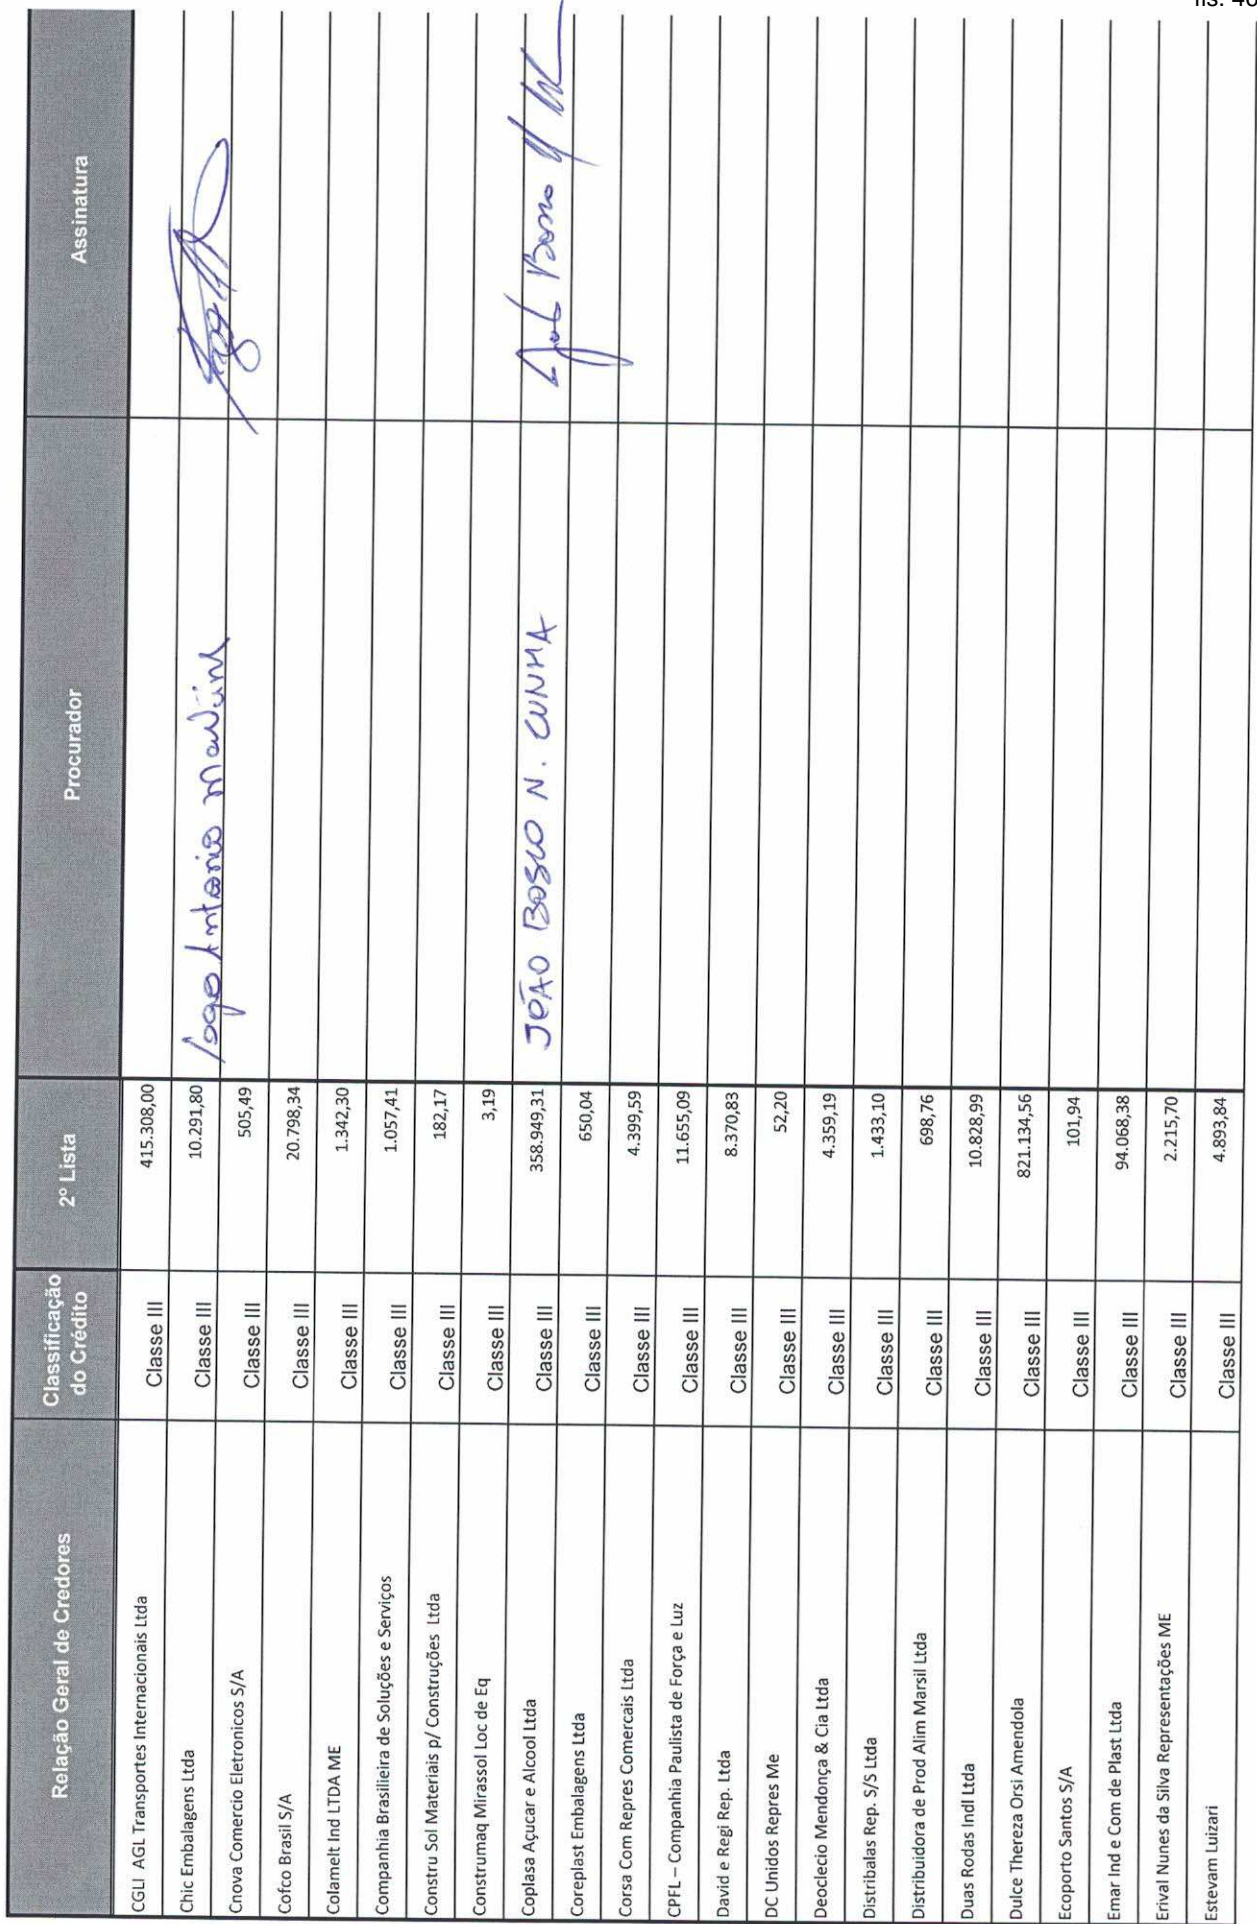 fls. 40
Relação Geral de Credores Classificação do Crédito 2º Lista Procurador Assinatura
CGLI AGL Transportes Internacionais Ltda Classe III 415.308,00
Chic Embalagens Ltda Classe III 10.291,80 Antonio
Cnova Comercio Eletronicos S/A Classe III 505,49
Cofco Brasil S/A Classe III 20.798,34
Colamelt Ind LTDA ME Classe III 1.342,30
Companhia Brasilieira de Soluções e Serviços Classe III 1.057,41
Constru Sol Materiais p/ Construções Ltda Classe III 182,17
Construmaq Mirassol Loc de Eq Classe III 3,19
Coplasa Açucar e Alcool Ltda Classe III 358.949,31 JOÃO BOSCO N. CUNHA
Coreplast Embalagens Ltda Classe III 650,04
Corsa Com Repres Comercais Ltda Classe III 4.399,59
CPFL – Companhia Paulista de Força e Luz Classe III 11.655,09
David e Regi Rep. Ltda Classe III 8.370,83
DC Unidos Repres Me Classe III 52,20
Deoclecio Mendonça & Cia Ltda Classe III 4.359,19
Distribalas Rep. S/S Ltda Classe III 1.433,10
Distribuidora de Prod Alim Marsil Ltda Classe III 698,76
Duas Rodas Indl Ltda Classe III 10.828,99
Dulce Thereza Orsi Amendola Classe III 821.134,56
Ecoporto Santos S/A Classe III 101,94
Emar Ind e Com de Plast Ltda Classe III 94.068,38
Erival Nunes da Silva Representações ME Classe III 2.215,70
Estevam Luizari Classe III 4.893,84